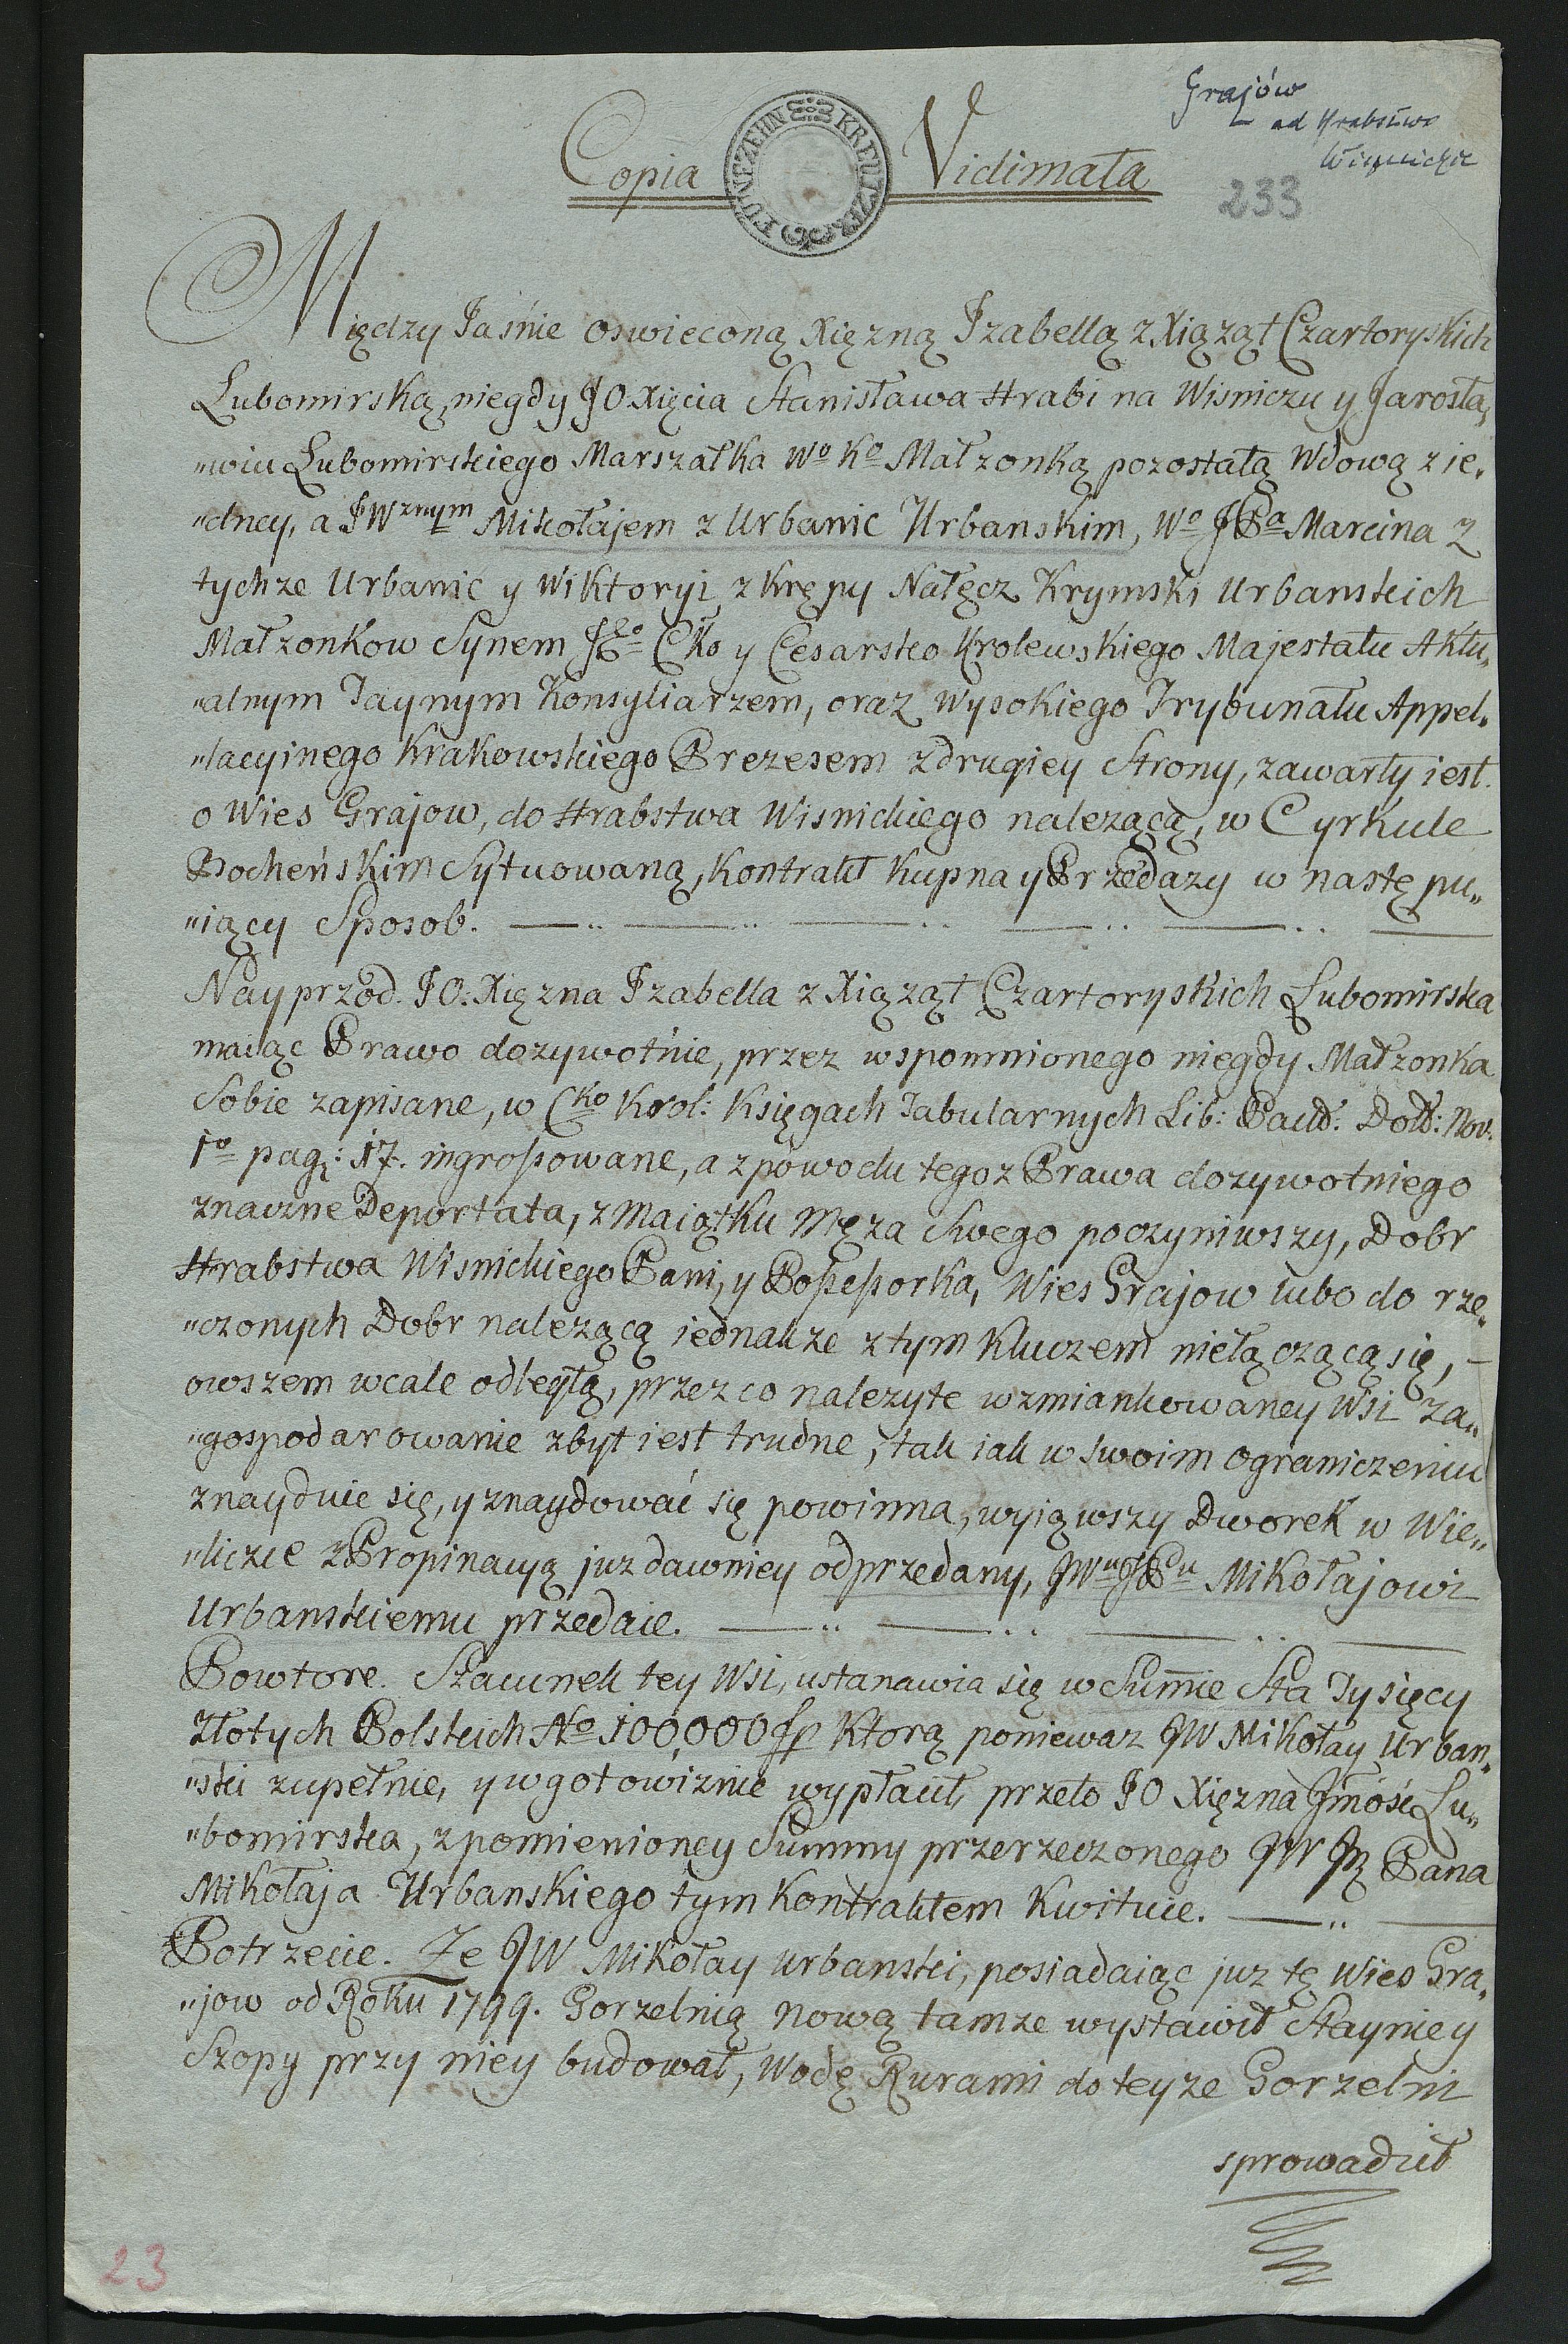 Grajów
ad Hrabstwo
Wiśnickie
233
Copia Vidimata
FÜNFZEHN KREUTZER
Między Jaśnie oswieconą Xięzną Izabellą z Xiąząt Czartoryskich
Lubomirską, niegdy JO Xięcia Stanisława Hrabi na Wisniczu y Jarosła„
„wiu Lubomirskiego Marszałka Wo Ko Małzonką pozostałą Wdową z ie„
„dney, a JWznym Mikołajem z Urbanic Urbanskim, Wo JPa Marcina z
tychze Urbanic y Wiktoryi z Krępy Nałęcz Krymski Urbanskich
Małzonkow Synem Jego Cko y Cesarsko Krolewskiego Majestatu Aktu„
„alnym Taynym Konsyliarzem, oraz Wysokiego Trybunału Appel„
„lacyinego Krakowskiego Prezesem z drugiey Strony, zawarty iest.
o Wies Grajow, do Hrabstwa Wisnickiego nalezącą, w Cyrkule
Bocheńskim Sytuowaną, Kontrakt Kupna y Przedazy w nastę pu„
„iący Sposob.
Nayprzod. JO: Xięzna Izabella z Xiąząt Czartoryskich Lubomirska
maiąc Prawo dozywotnie, przez wspomnionego niegdy Małzonka
Sobie zapisane, w Cko Krol: Księgach Tabularnych Lib: Pact: Dot: Nov:
1o pag: 17. ingrossowane, a z powodu tegoz Prawa dozywotniego
znaczne Deportata, z Maiątku Męza Swego poczyniwszy, Dobr
Hrabstwa Wisnickiego Pani, y Possessorka, Wies Grajow lubo do rze„
„czonych Dobr nalezącą iednakze z tym Kluczem niełączącą się, –
owszem wcale odległą, przez co nalezyte wzmiankowaney Wsi za„
„gospodarowanie zbyt iest trudne, tak iak w swoim ograniczeniu
znayduie się, y znaydować się powinna, wyiąwszy Dworek w Wie„
„liczce z Propinacyą juz dawniey odprzedany, JWu JPu Mikołajowi
Urbanskiemu przedaie.
Powtore. Szacunek tey Wsi, ustanawia się w Summie Sta Tysięcy
Złotych Polskich No 100,000 fp Ktorą poniewaz JW Mikołay Urban„
„ski zupełnie, y w gotowiznie wypłacił, przeto JO Xięzna Jmość Lu„
„bomirska, z pomienioney Summy przerzeczonego JW Jm Pana
Mikołaja Urbanskiego tym Kontraktem Kwituie.
Potrzecie. Ze JW Mikołay Urbanski, posiadaiąc juz tę Wies Gra„
„jow od Roku 1799. Gorzelnią nową tamze wystawił Stayniey
Szopy przy niey budował, Wodę Rurami do teyze Gorzelni
sprowadził
23